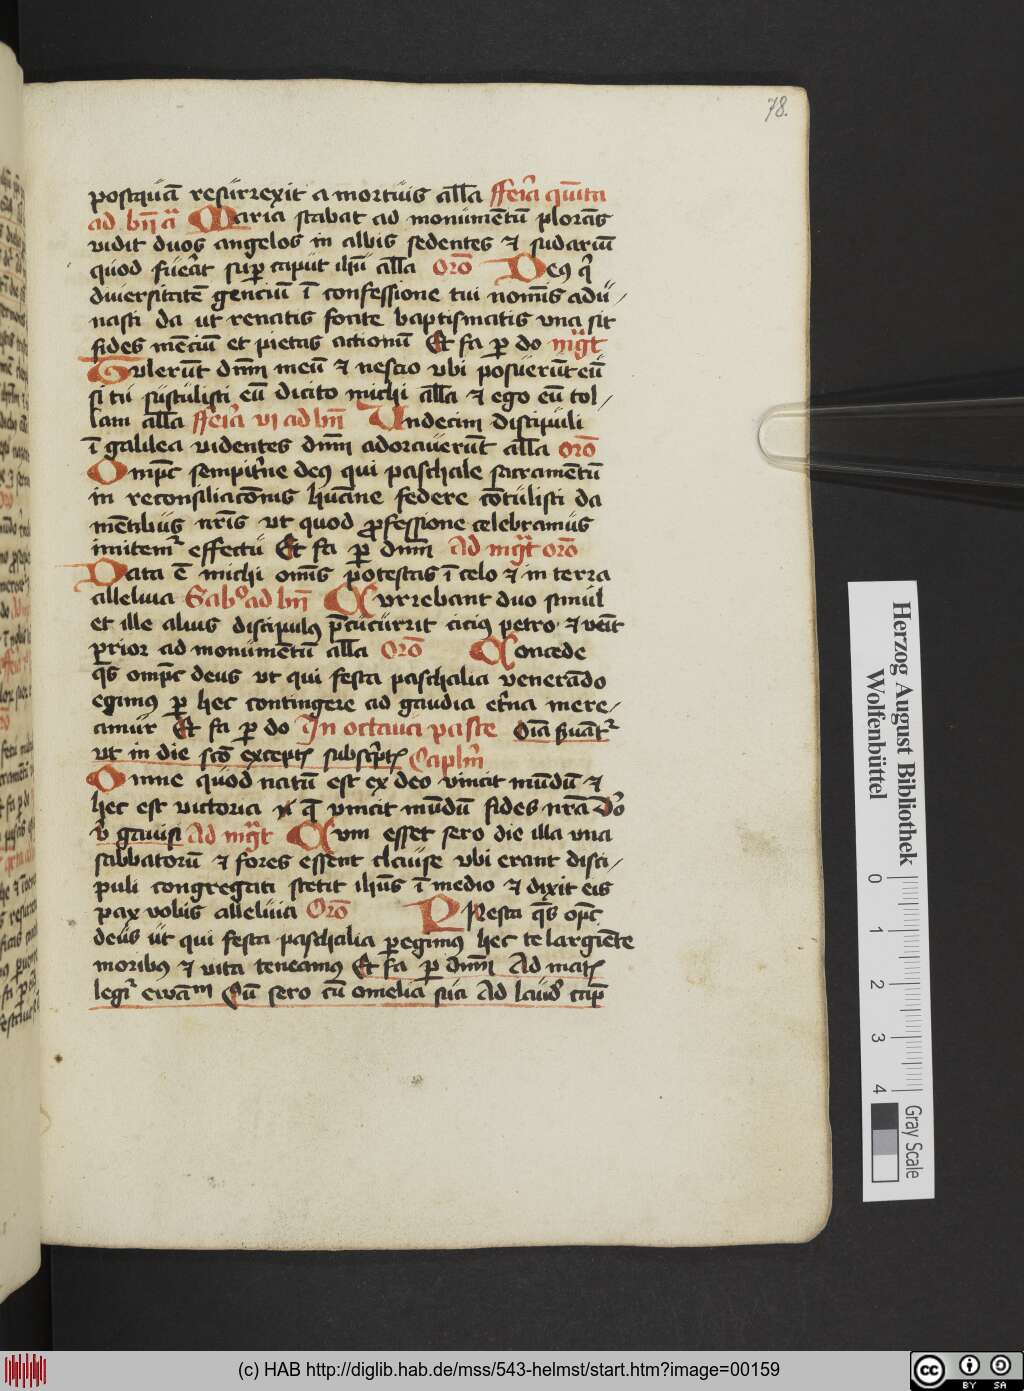 78.
postquā resurrexit a mortuis all̄a ffeīa qūita
ad bn̄ a᷃ Maria stabat ad monumētū plorās
vidit duos angelos in albis sedentes ⁊ sudariū
quod fuēat suꝑ caput ih̄u all̄a Orō Deꝯ q̄
diuersitatē genciū ī confessione tui nomīs adu/
nasti da ut renatis fonte baptismatis vna sit
fides mēciū et pietas actionū Et fa ꝑ do mgt̄
Tulerūt dn̄m meū ⁊ nescio vbi posuerūt eū
si tu sustulisti eū dicito michi all̄a ⁊ ego eū tol/
lam all̄a ffeīa vi ad bn̄ Vndecim discipuli
ī galilea videntes dn̄m adorauerūt all̄a orō
Ompc̄ sempit̄ne deꝯ qui paschale sacramētū
in reconsiliacōnis huāne federe cōtulisti da
mētibus nr̄is vt quod ꝓfessione celebramus
imitem᷑ effectu Et fa ꝑ dn̄m Ad mgt̄ orō
Data ē michi om̄is potestas ī celo ⁊ in terra
alleluia Sabº ad bn̄ Currebant duo simul
et ille alius discipulꝯ p̄cucurrit ciciꝯ petro ⁊ vēit
prior ad monumētū all̄a Orō Concede
qs̄ ompc̄ deus vt qui festa paschalia venerādo
egimus ꝑ hec contingere ad gaudia et̄na mere/
amur Et fa ꝑ do In octaua pasce Oīa ẜuāt᷑
vt in die scō exceptꝭ subscp̄tꝭ Caplm̄
Omne quod natū est ex deo vincit mūdū ⁊
hec est victoria q̄ vincit mūdū fides nr̄a
gauisi Ad mgt̄ Cum esset sero die illa vna
sabbatorū ⁊ fores essent clause vbi erant disci/
puli congregati stetit ih̄us ī medio ⁊ dixit eis
pax vobis alleluia Orō PResta qs̄ opc̄
deus ut qui festa paschalia ꝑegimꝯ hec te largiēte
moribꝯ ⁊ vita teneamꝯ Et fa ꝑ dn̄m Ad matꝭ
legi᷑ ewāᵐ Cū sero cū omelia sua Ad laud̾ cap̄
Herzog August Bibliothek
Wolfenbüttel
0 1 2 3 4
Gray Scale
(c) HAB http://diglib.hab.de/mss/543-helmst/start.htm?image=00159
cc BY SA